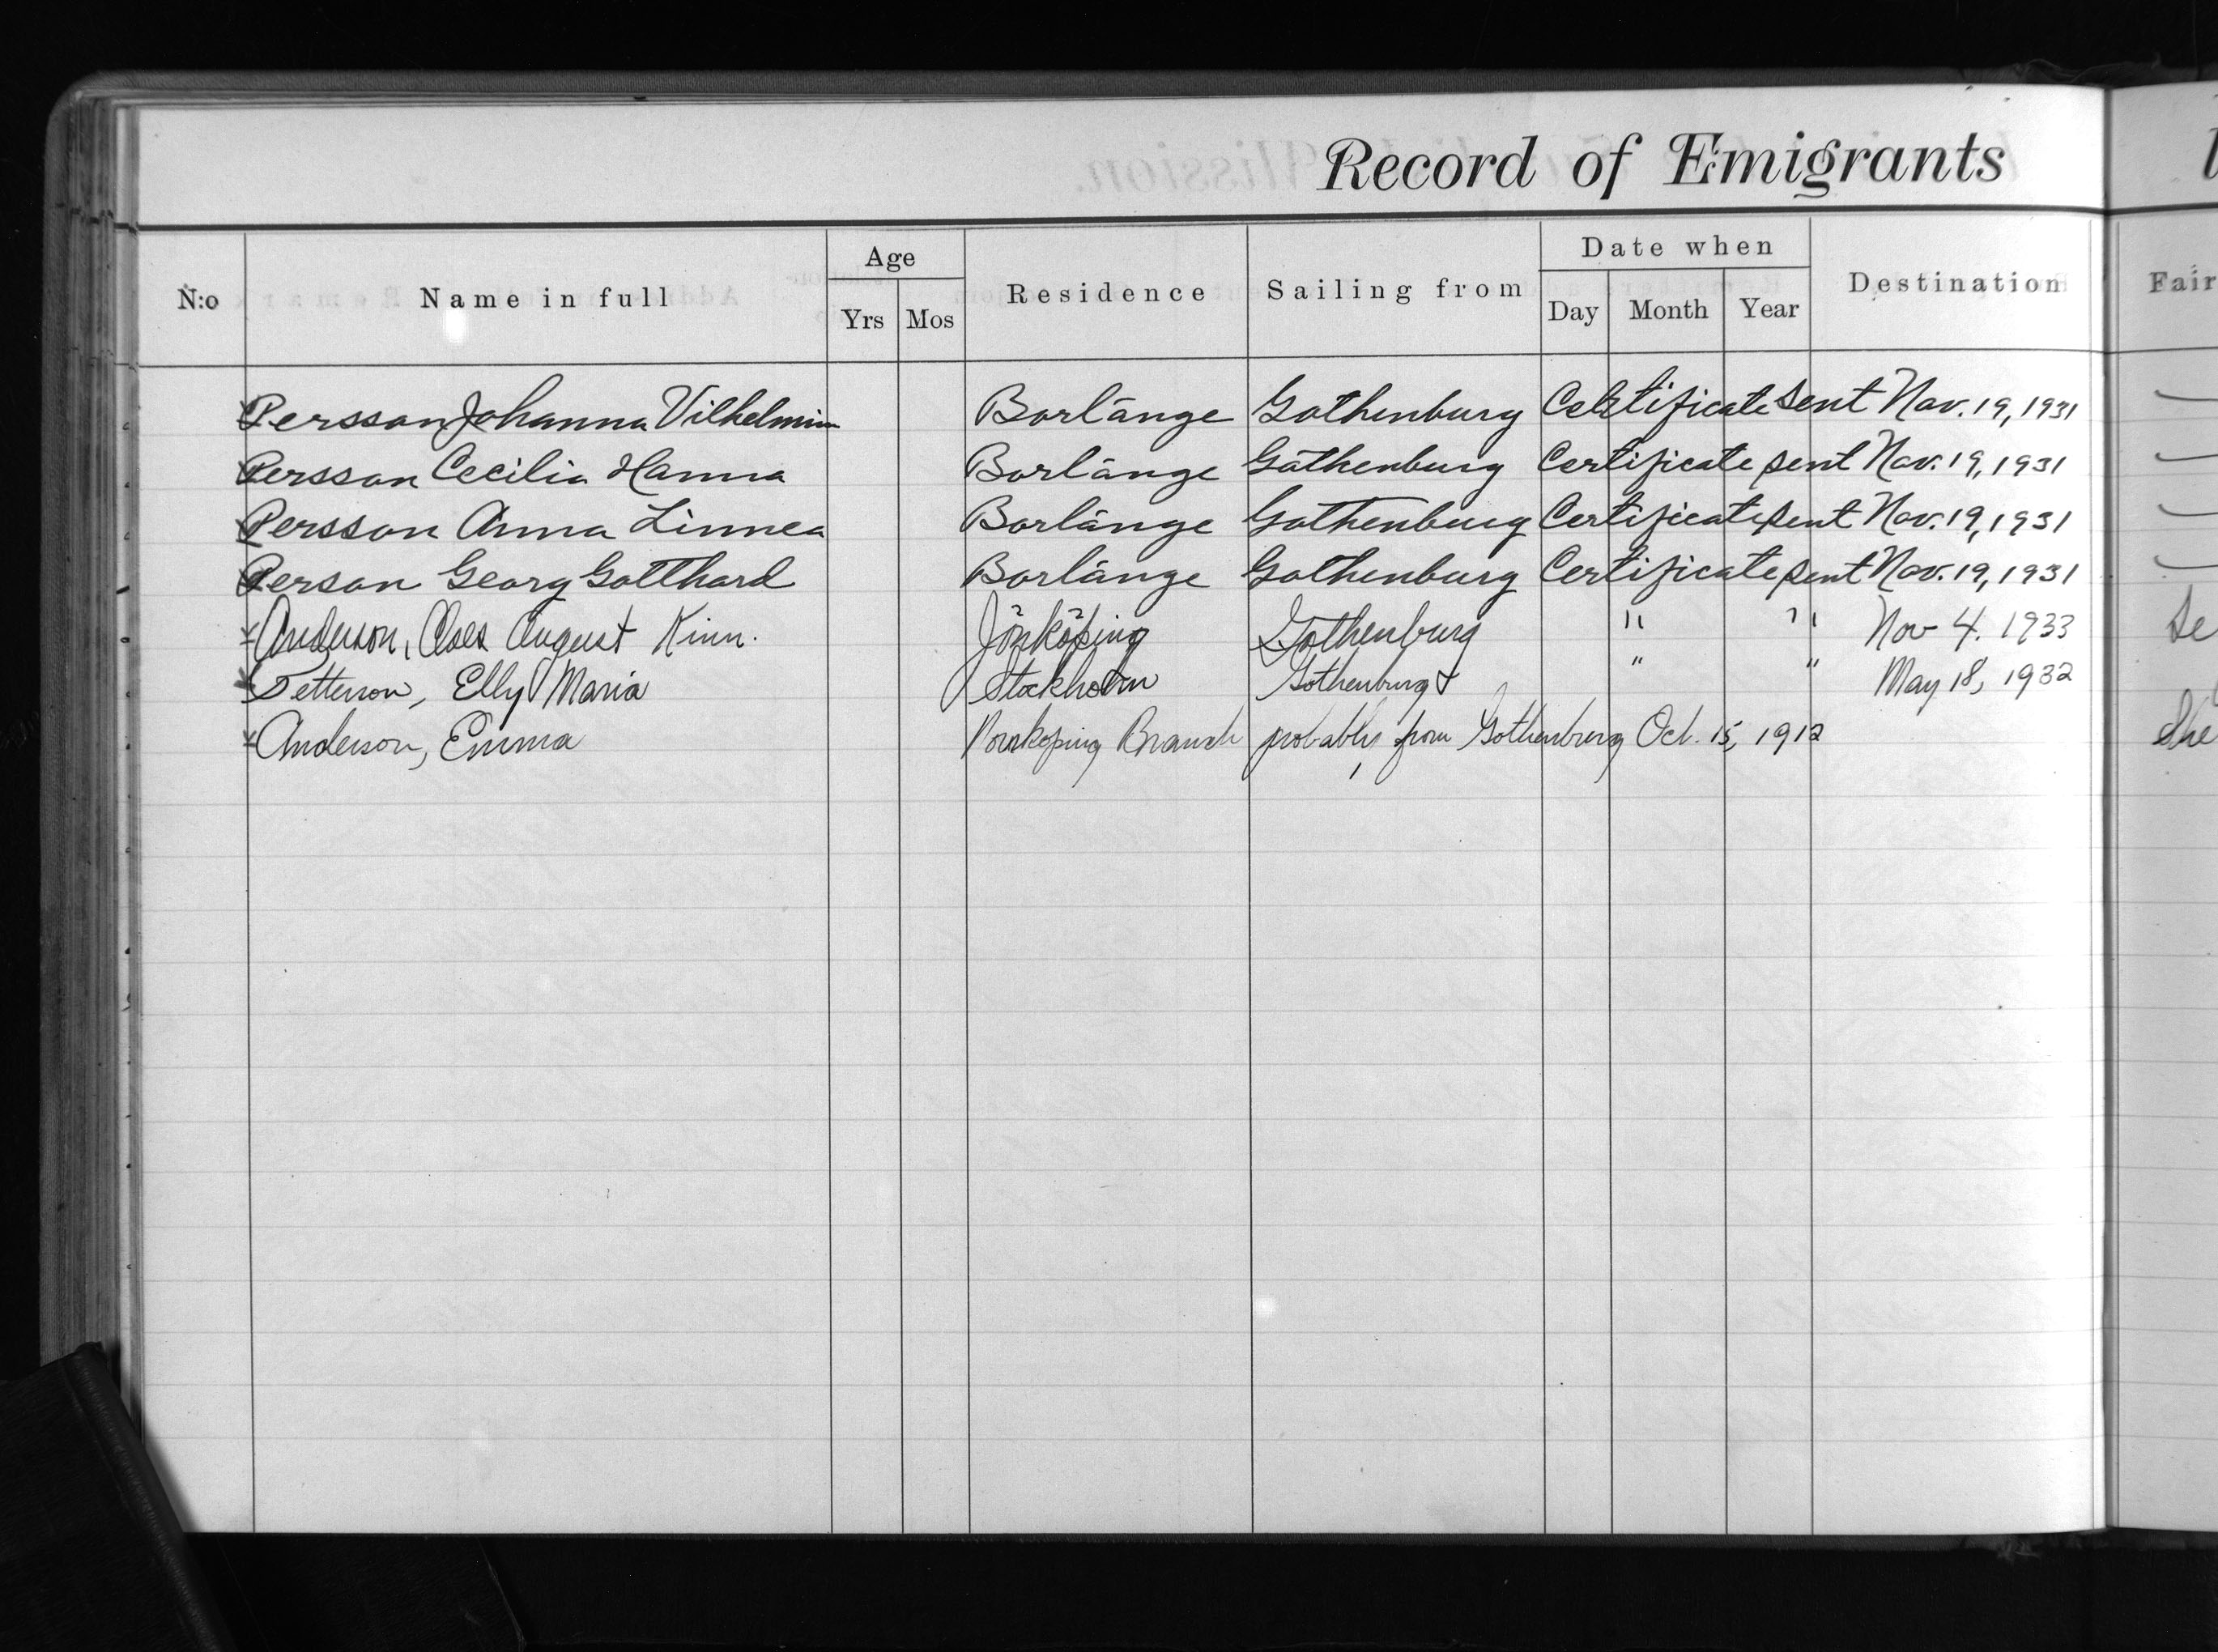 Record of Emigrants
N:o Name in full Age Residence Sailing from Date when Destination Fair
Yrs Mos Day Month Year
Persson Johanna Vilhelmin Borlänge Gothenburg Certificate Sent Nov. 19, 1931
Persson Cecilia Hanna Borlänge Gothenburg Certificate sent Nov. 19, 1931
Persson Anna Linnea Borlänge Gothenburg Certificate sent Nov. 19, 1931
Person Georg Gotthard Borlänge Gothenburg Certificate sent Nov. 19, 1931
Anderson, August Kinn. Jönköping Gothenburg " " Nov 4. 1933 Se
Petterson, Elly Maria Stockholm Gothenburg " " May 18, 1932
Anderson, Emma Branch probably from Gothenburg Oct. 15, 1912 She